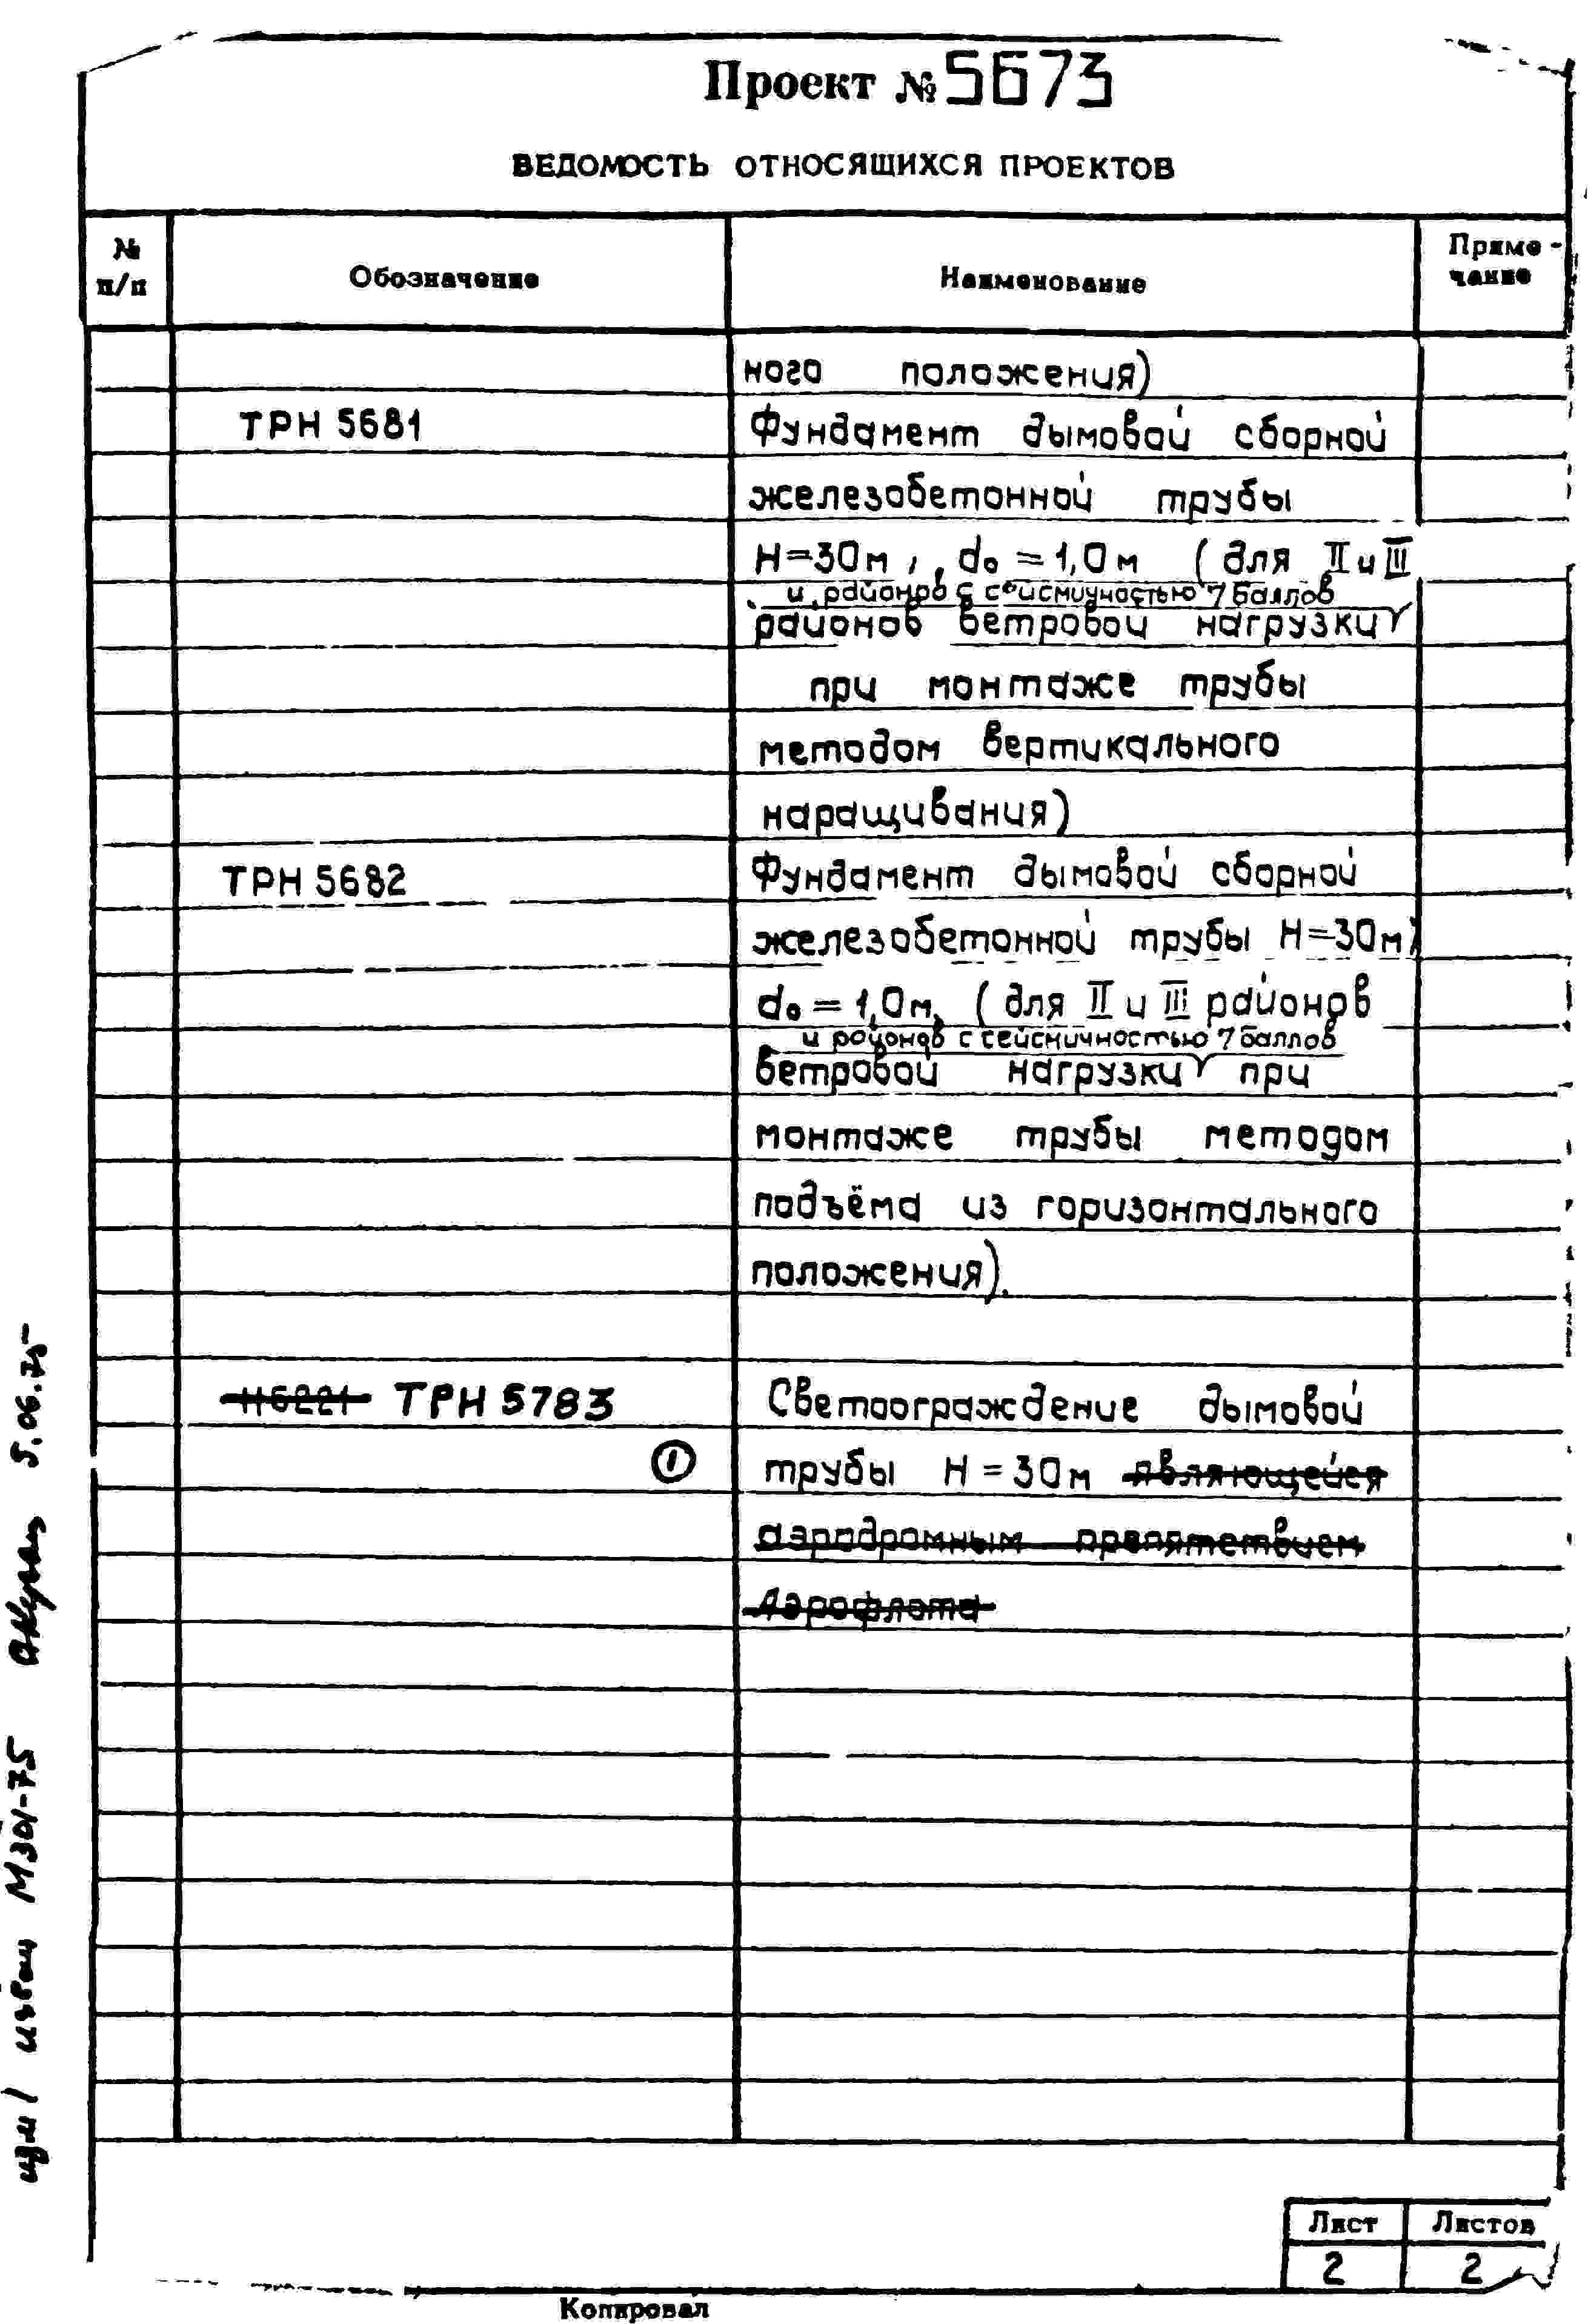 Проект № 5673
ВЕДОМОСТЬ ОТНОСЯЩИХСЯ ПРОЕКТОВ
№ п/п
Обозначение
Наименование
Приме-
чание
ного положения)
ТРН 5681 Фундамент дымовой сборной
железобетонной трубы
Н=30м, d₀=1,0м (для II и III
и районов с сейсмичностью 7 баллов
районов ветровой нагрузки
при монтаже трубы
методом вертикального
наращивания)
ТРН 5682 Фундамент дымовой сборной
железобетонной трубы Н=30м,
d₀=1,0м, (для II и III районов
и районов с сейсмичностью 7 баллов
ветровой нагрузки при
монтаже трубы методом
подъёма из горизонтального
положения).
Н6221 ТРН 5783 Светоограждение дымовой
1 трубы Н=30м являющейся
аэродромным препятствием
Аэрофлота
Лист Листов
2 2
Копировал
изм 1 извещ М301-75 5.06.75